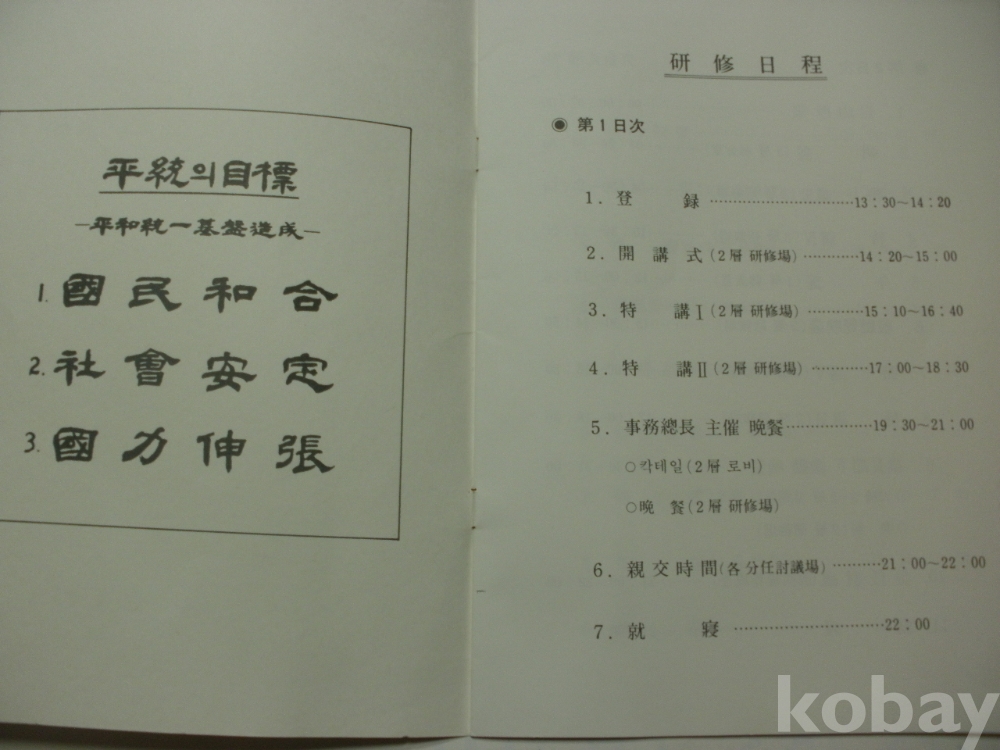 平統의目標
―平和統一基盤造成―
1. 國民和合
2. 社會安定
3. 國力伸張
研修日程
◉ 第1日次
1. 登 録 ························13:30~14:20
2. 開講式(2層 研修場)···········14:20~15:00
3. 特 講Ⅰ(2層 研修場)···········15:10~16:40
4. 特 講Ⅱ(2層 研修場)···········17:00~18:30
5. 事務總長 主催 晩餐·················19:30~21:00
○칵테일(2層 로비)
○晩 餐(2層 研修場)
6. 親交時間(各 分任討議場)·········21:00~22:00
7. 就 寢 ·····························22:00
kobay